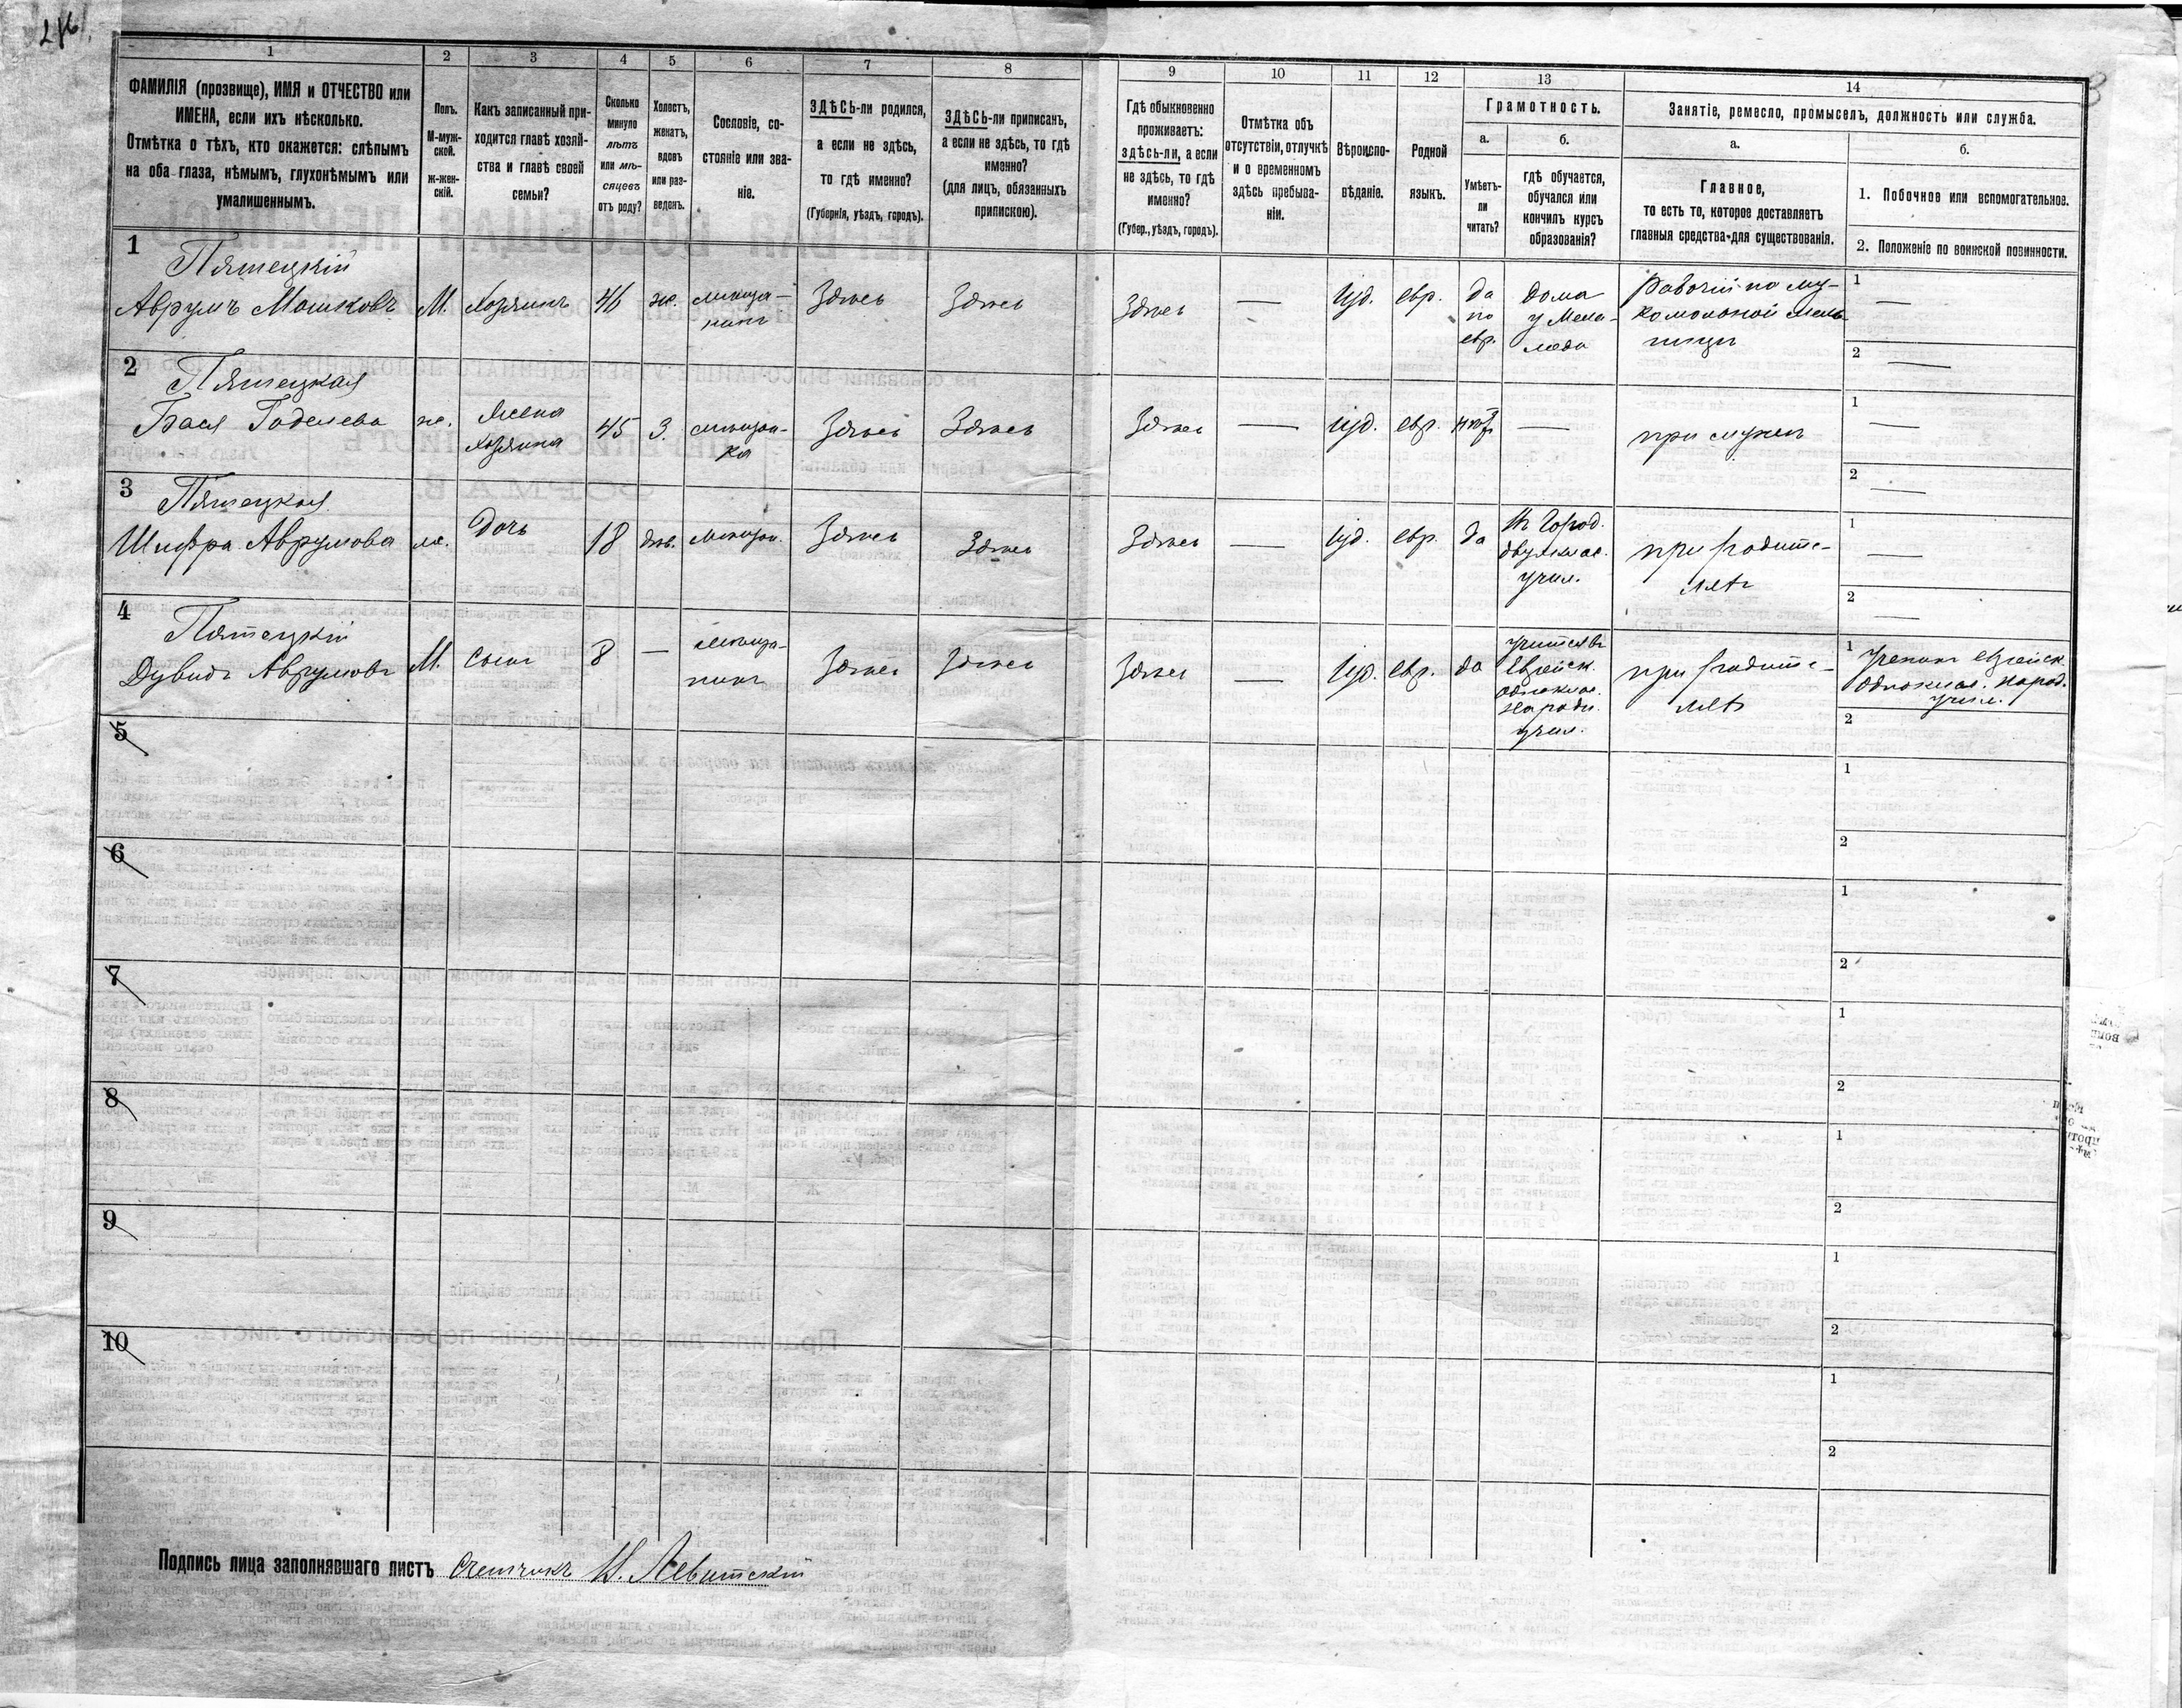 1
2
3
4
5
6
7
8
ФАМИЛІЯ (прозвище), ИМЯ и ОТЧЕСТВО или
ИМЕНА, если ихъ нѣсколько.
Отмѣтка о тѣхъ, кто окажется: слѣпымъ
на оба глаза, нѣмымъ, глухонѣмымъ или
умалишеннымъ.
Полъ.
М-муж-
ской.
ж-жен-
скій.
Какъ записанный при-
ходится главѣ хозяй-
ства и главѣ своей
семьи?
Сколько
минуло
лѣтъ
или мѣ-
сяцевъ
отъ роду?
Холостъ,
женатъ,
вдовъ
или раз-
веденъ.
Сословіе, со-
стояніе или зва-
ніе.
ЗДѢСЬ-ли родился,
а если не здѣсь,
то гдѣ именно?
(Губернія, уѣздъ, городъ).
ЗДѢСЬ-ли приписанъ,
а если не здѣсь, то гдѣ
именно?
(для лицъ, обязанныхъ
припискою).
9
10
11
12
13
14
Гдѣ обыкновенно
проживаетъ:
здѣсь-ли, а если
не здѣсь, то гдѣ
именно?
(Губер., уѣздъ, городъ).
Отмѣтка объ
отсутствіи, отлучкѣ
и о временномъ
здѣсь пребыва-
ніи.
Вѣроиспо-
вѣданіе.
Родной
языкъ.
Грамотность.
а.
Умѣетъ-
ли
читать?
б.
гдѣ обучается,
обучался или
кончилъ курсъ
образованія?
Занятіе, ремесло, промыселъ, должность или служба.
а.
Главное,
то есть то, которое доставляетъ
главныя средства для существованія.
б.
1. Побочное или вспомогательное.
2. Положеніе по воинской повинности.
1
Пятецкій
Аврумъ Мошковъ
М.
Хозяинъ
46
ж.
мѣща-
нинъ
Здѣсь
Здѣсь
Здѣсь
—
Іуд.
евр.
да
по
евр.
Дома
у Мела-
меда
Рабочій на му-
комольной мель-
ницѣ
1 —
2 —
2
Пятецкая
Бася Годелева
ж.
Жена
Хозяина
45
З.
мѣщан-
ка
Здѣсь
Здѣсь
Здѣсь
—
Іуд.
евр.
нѣтъ
—
при мужѣ
1 —
2 —
3
Пятецкая
Шифра Аврумова
ж.
Дочь
18
дѣв.
мѣщан.
Здѣсь
Здѣсь
Здѣсь
—
Іуд.
евр.
да
Город.
двухклас.
учил.
при родите-
ляхъ
1 —
2 —
4
Пятецкій
Дувидъ Аврумовъ
М.
Сынъ
8
—
мѣща-
нинъ
Здѣсь
Здѣсь
Здѣсь
—
Іуд.
евр.
да
Еврейск.
одноклас.
народн.
учил.
при родите-
ляхъ
1 Ученикъ еврейск.
одноклас. народ.
учил.
2
5
1
2
6
1
2
7
1
2
8
1
2
9
1
2
10
1
2
Подпись лица заполнявшаго листъ Счетчикъ Н. Левитскій